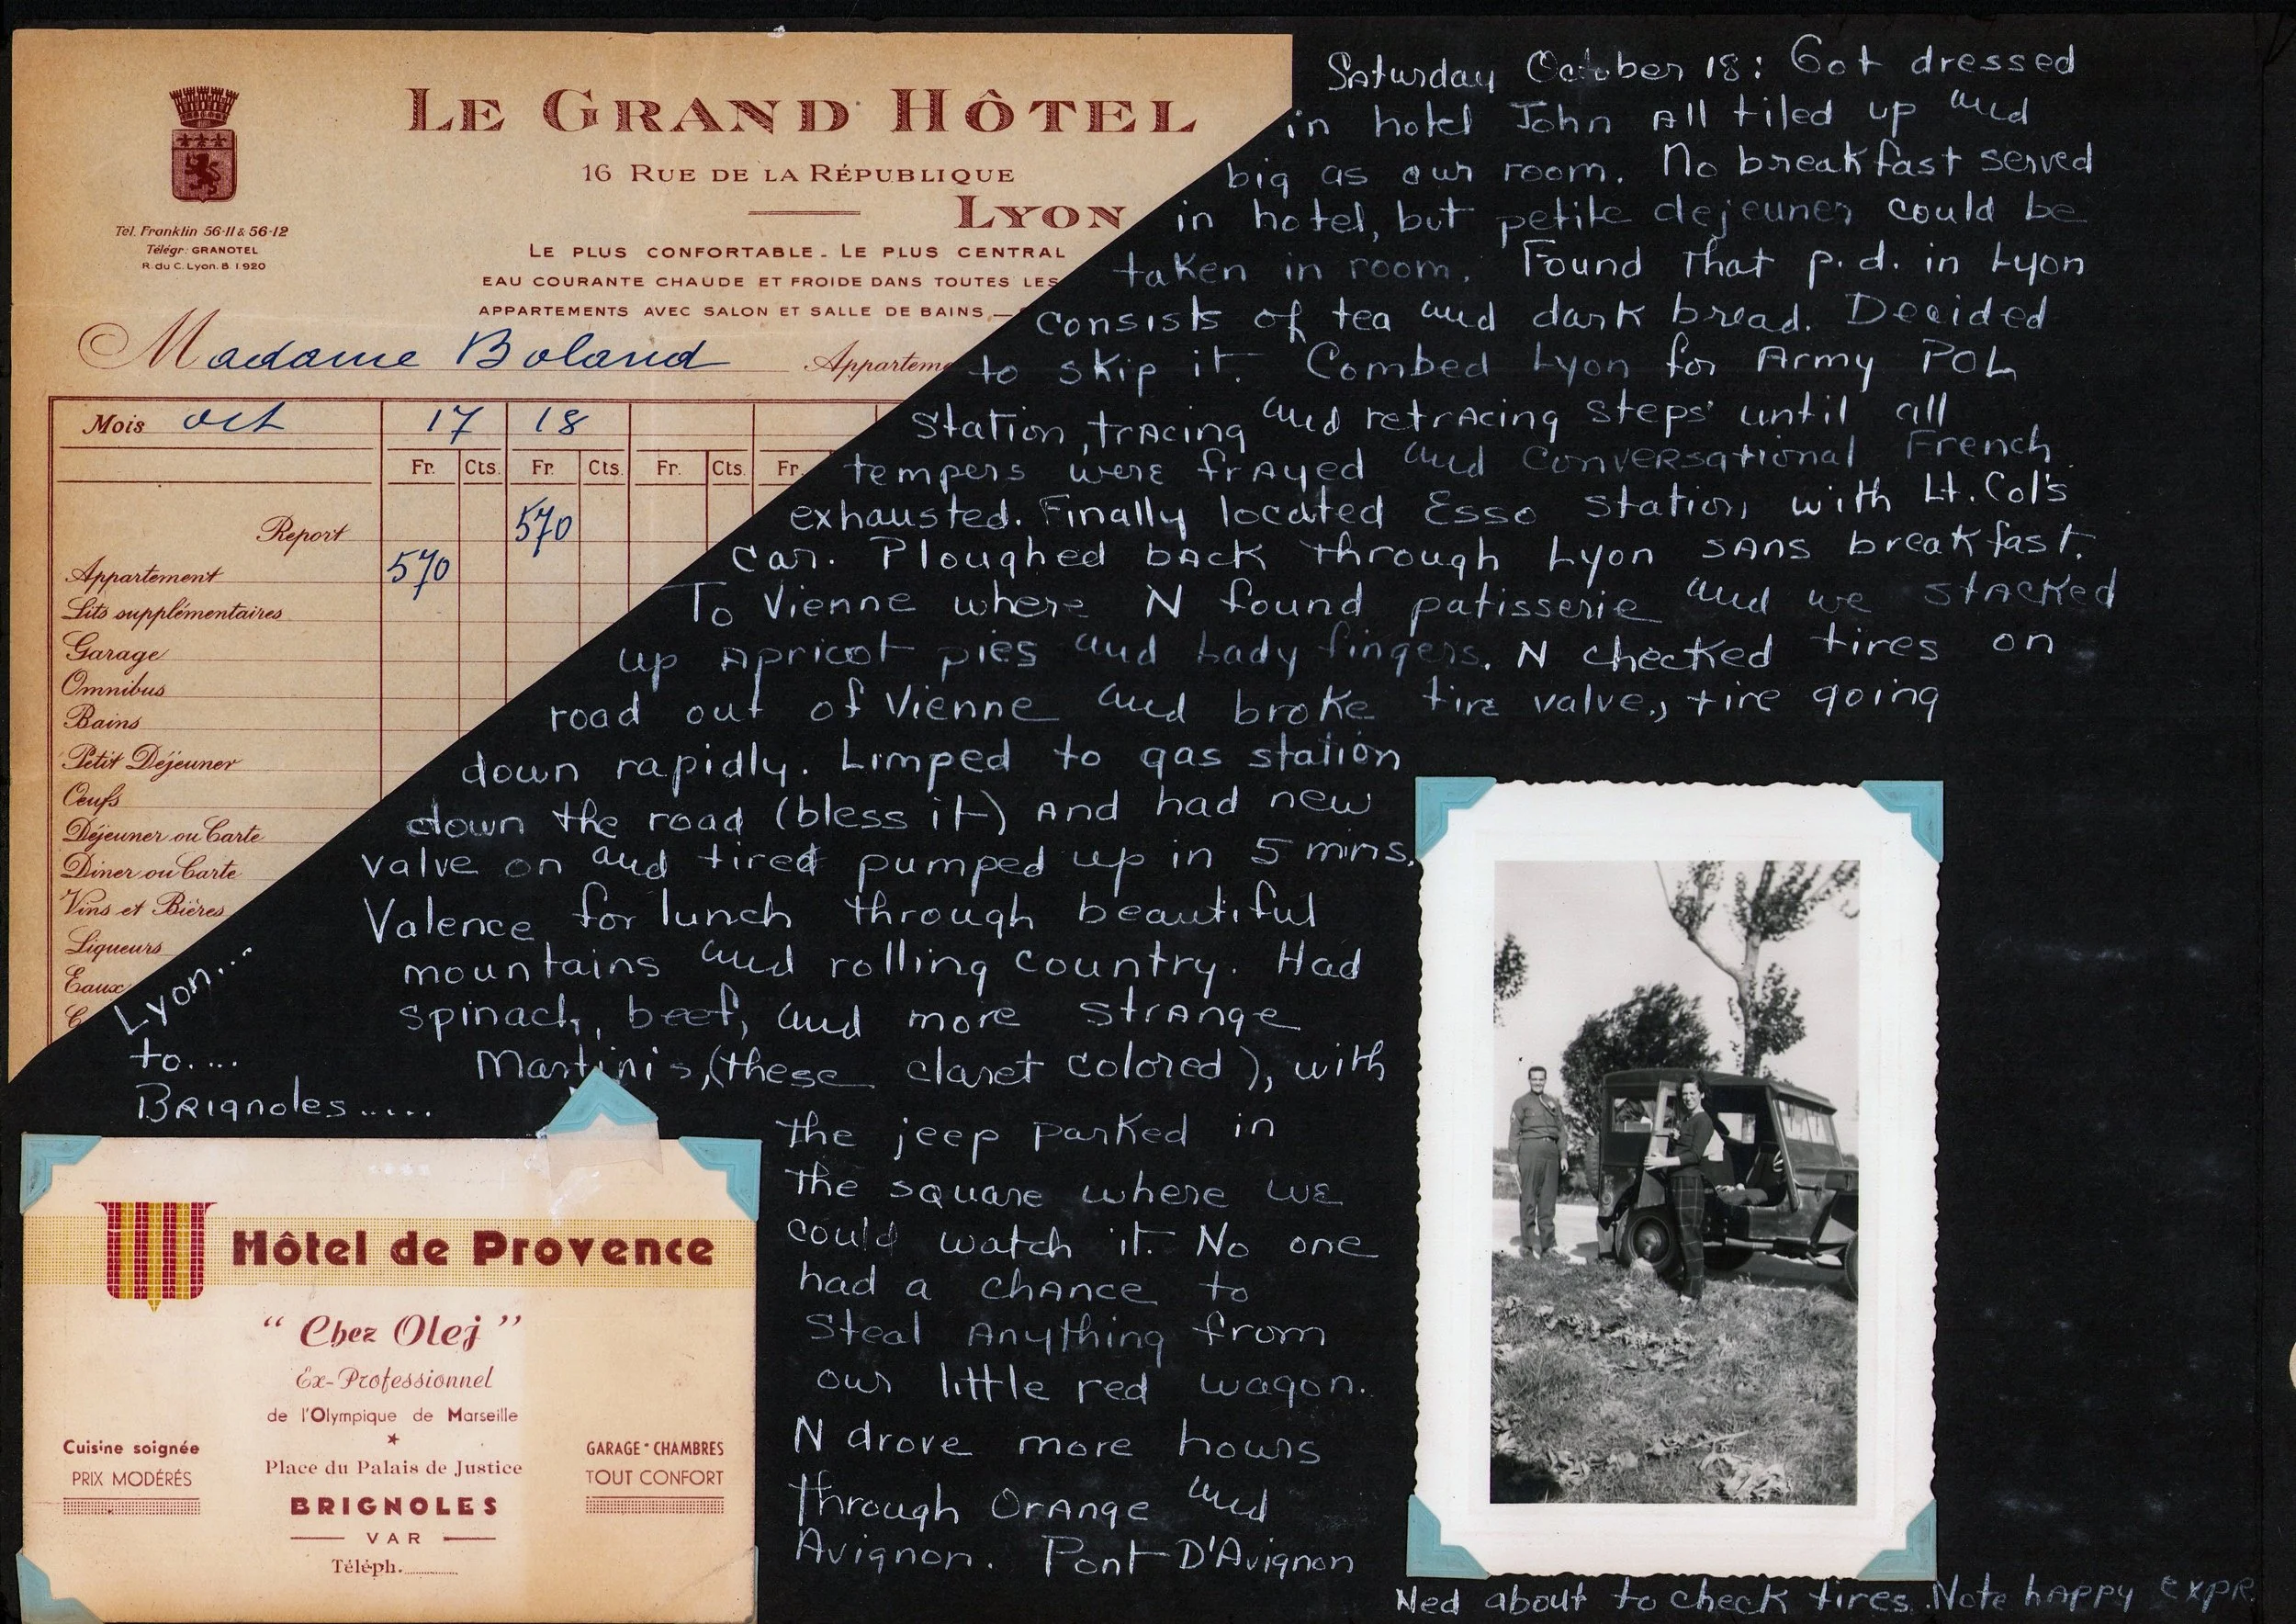 LE GRAND HÔTEL
16 RUE DE LA RÉPUBLIQUE
LYON
Tél. Franklin 56-11 & 56-12
Télégr: GRANOTEL
R. du C. Lyon. B 1.920
LE PLUS CONFORTABLE - LE PLUS CENTRAL
EAU COURANTE CHAUDE ET FROIDE DANS TOUTES LES
APPARTEMENTS AVEC SALON ET SALLE DE BAINS -
Madame Boland Apparteme
Mois oct 17 18
Fr. Cts. Fr. Cts. Fr. Cts. Fr.
Report 570
Appartement 570
Lits supplémentaires
Garage
Omnibus
Bains
Petit Déjeuner
Oeufs
Déjeuner ou Carte
Diner ou Carte
Vins et Bières
Liqueurs
Eaux
C
Saturday October 18: Got dressed
in hotel John all tiled up and
big as our room. No breakfast served
in hotel, but petite dejeuner could be
taken in room. Found that p.d. in Lyon
consists of tea and dark bread. Decided
to skip it. Combed Lyon for Army POL
Station, tracing and retracing steps until all
tempers were frayed and conversational French
exhausted. Finally located Esso station with Lt. Col's
car. Ploughed back through Lyon sans breakfast.
To Vienne where N found patisserie and we stacked
up apricot pies and Lady fingers. N checked tires on
road out of Vienne and broke tire valve, tire going
down rapidly. Limped to gas station
down the road (bless it) and had new
valve on and tired pumped up in 5 mins.
Valence for lunch through beautiful
mountains and rolling country. Had
spinach, beef, and more strange
Martinis, (these claret colored), with
the jeep parked in
the square where we
could watch it. No one
had a chance to
steal anything from
our little red wagon.
N drove more hours
through Orange and
Avignon. Pont D'Avignon
Lyon...
to....
Brignoles.....
Hôtel de Provence
"Chez Olej"
Ex-Professionnel
de l'Olympique de Marseille
Cuisine soignée
PRIX MODÉRÉS
Place du Palais de Justice
BRIGNOLES
VAR
Téléph.
GARAGE * CHAMBRES
TOUT CONFORT
Ned about to check tires. Note happy expr.